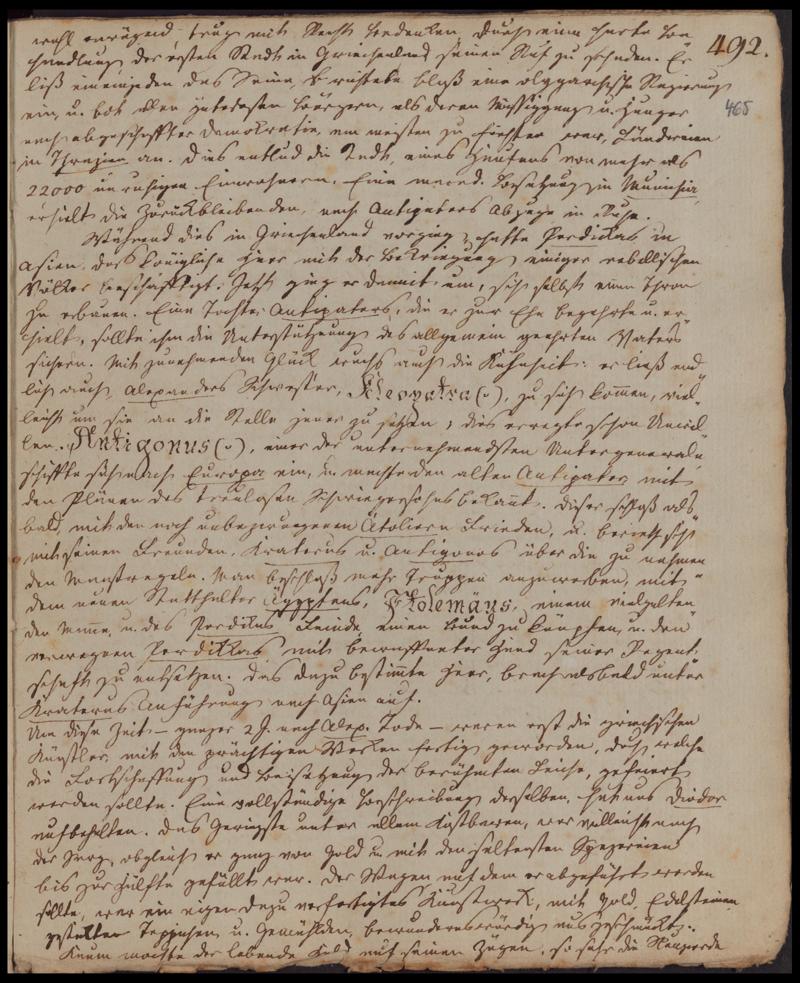 wohl erwägend, trug mit Recht Bedenken, durch eine harte Be-
handlung der ersten Stadt in Griechenland seinen Ruf zu schaden. Er
ließ einem jeden das Seine, errichtete bloß eine olygarchische Regierung
ein, u. bot allen güterlosen Bürgern, als deren Müssiggang u. Hunger
nach abgeschaffter Demokratie, am meisten zu fürchten war, Ländereien
in Thrazien an. Dies entlud die Stadt, eines Haufens von mehr als
22000 unruhigen Einwohnern. Eine maced. Besatzung in Munichia
erhielt die Zurückbleibenden, nach Antipaters Abzuge in Ruhe.
Während dies in Griechenland vorging, hatte Perdikas in
Asien, das königliche Heer mit der Bekriegung einiger rebellischen
Völker beschäfftigt. Jetzt ging er damit um, sich selbst einen Thron
zu erbauen. Eine Tochter Antipaters, die er zur Ehe begehrte u. er-
hielt, sollte ihm die Unterstützung des allgemein geehrten Vaters
sichern. Mit zunehmendem Glück wuchs auch die Kühnheit: er ließ end-
lich auch Alexanders Schwester, Kleopatra (·), zu sich kommen, viel-
leicht um sie an die Stelle jener zu setzen; dies erregte schon Unwil-
len. Antigonus (·), einer der unternehmendsten Untergeneräle
schiffte sich nach Europa ein, u. machte den alten Antipater mit
den Plänen des treulosen Schwiegersohns bekannt. Dieser schloß als-
bald, mit den noch unbezwungenen Ätoliern Frieden, u. berieth sich
mit seinen Freunden, Kraterus u. Antigonos über die zu nehmen-
den Maasregeln. Man beschloß mehr Truppen anzuwerben, mit
dem neuen Statthalter Ägyptens, Ptolemäus, einem vielgelten-
den Manne, u. des Perdikas Feinde einen Bund zu knüpfen, u. den
verwegnen Perdikkas, mit bewaffneter Hand seiner Regent-
schaft zu entsetzen. Das dazu bestimmte Heer, brach alsbald unter
Kraterus Anführung nach Asien auf.
Um diese Zeit – ganzer 2 J. nach Alex. Tode – waren erst die griechischen
Künstler, mit den prächtigen Werken fertig geworden, durch welche
die Fortschaffung und Beisetzung der berühmten Leiche, gefeiert
werden sollte. Eine vollständige Beschreibung derselben, hat uns Diodor
aufbehalten. Das Geringste unter allem Kostbaren, war vielleicht noch
der Sarg, obgleich er ganz von Gold u. mit den seltensten Spezereien
bis zur Hälfte gefüllt war. Der Wagen auf dem er abgeführt werden
sollte, war ein eigen dazu verfertigtes Kunstwerk, mit Gold, Edelsteinen
gestickten Teppichen u. Gemählden, bewunderungswürdig ausgeschmückt.
Kaum mochte der lebende Held auf seinen Zügen, so sehr die Neugierde
492.
465